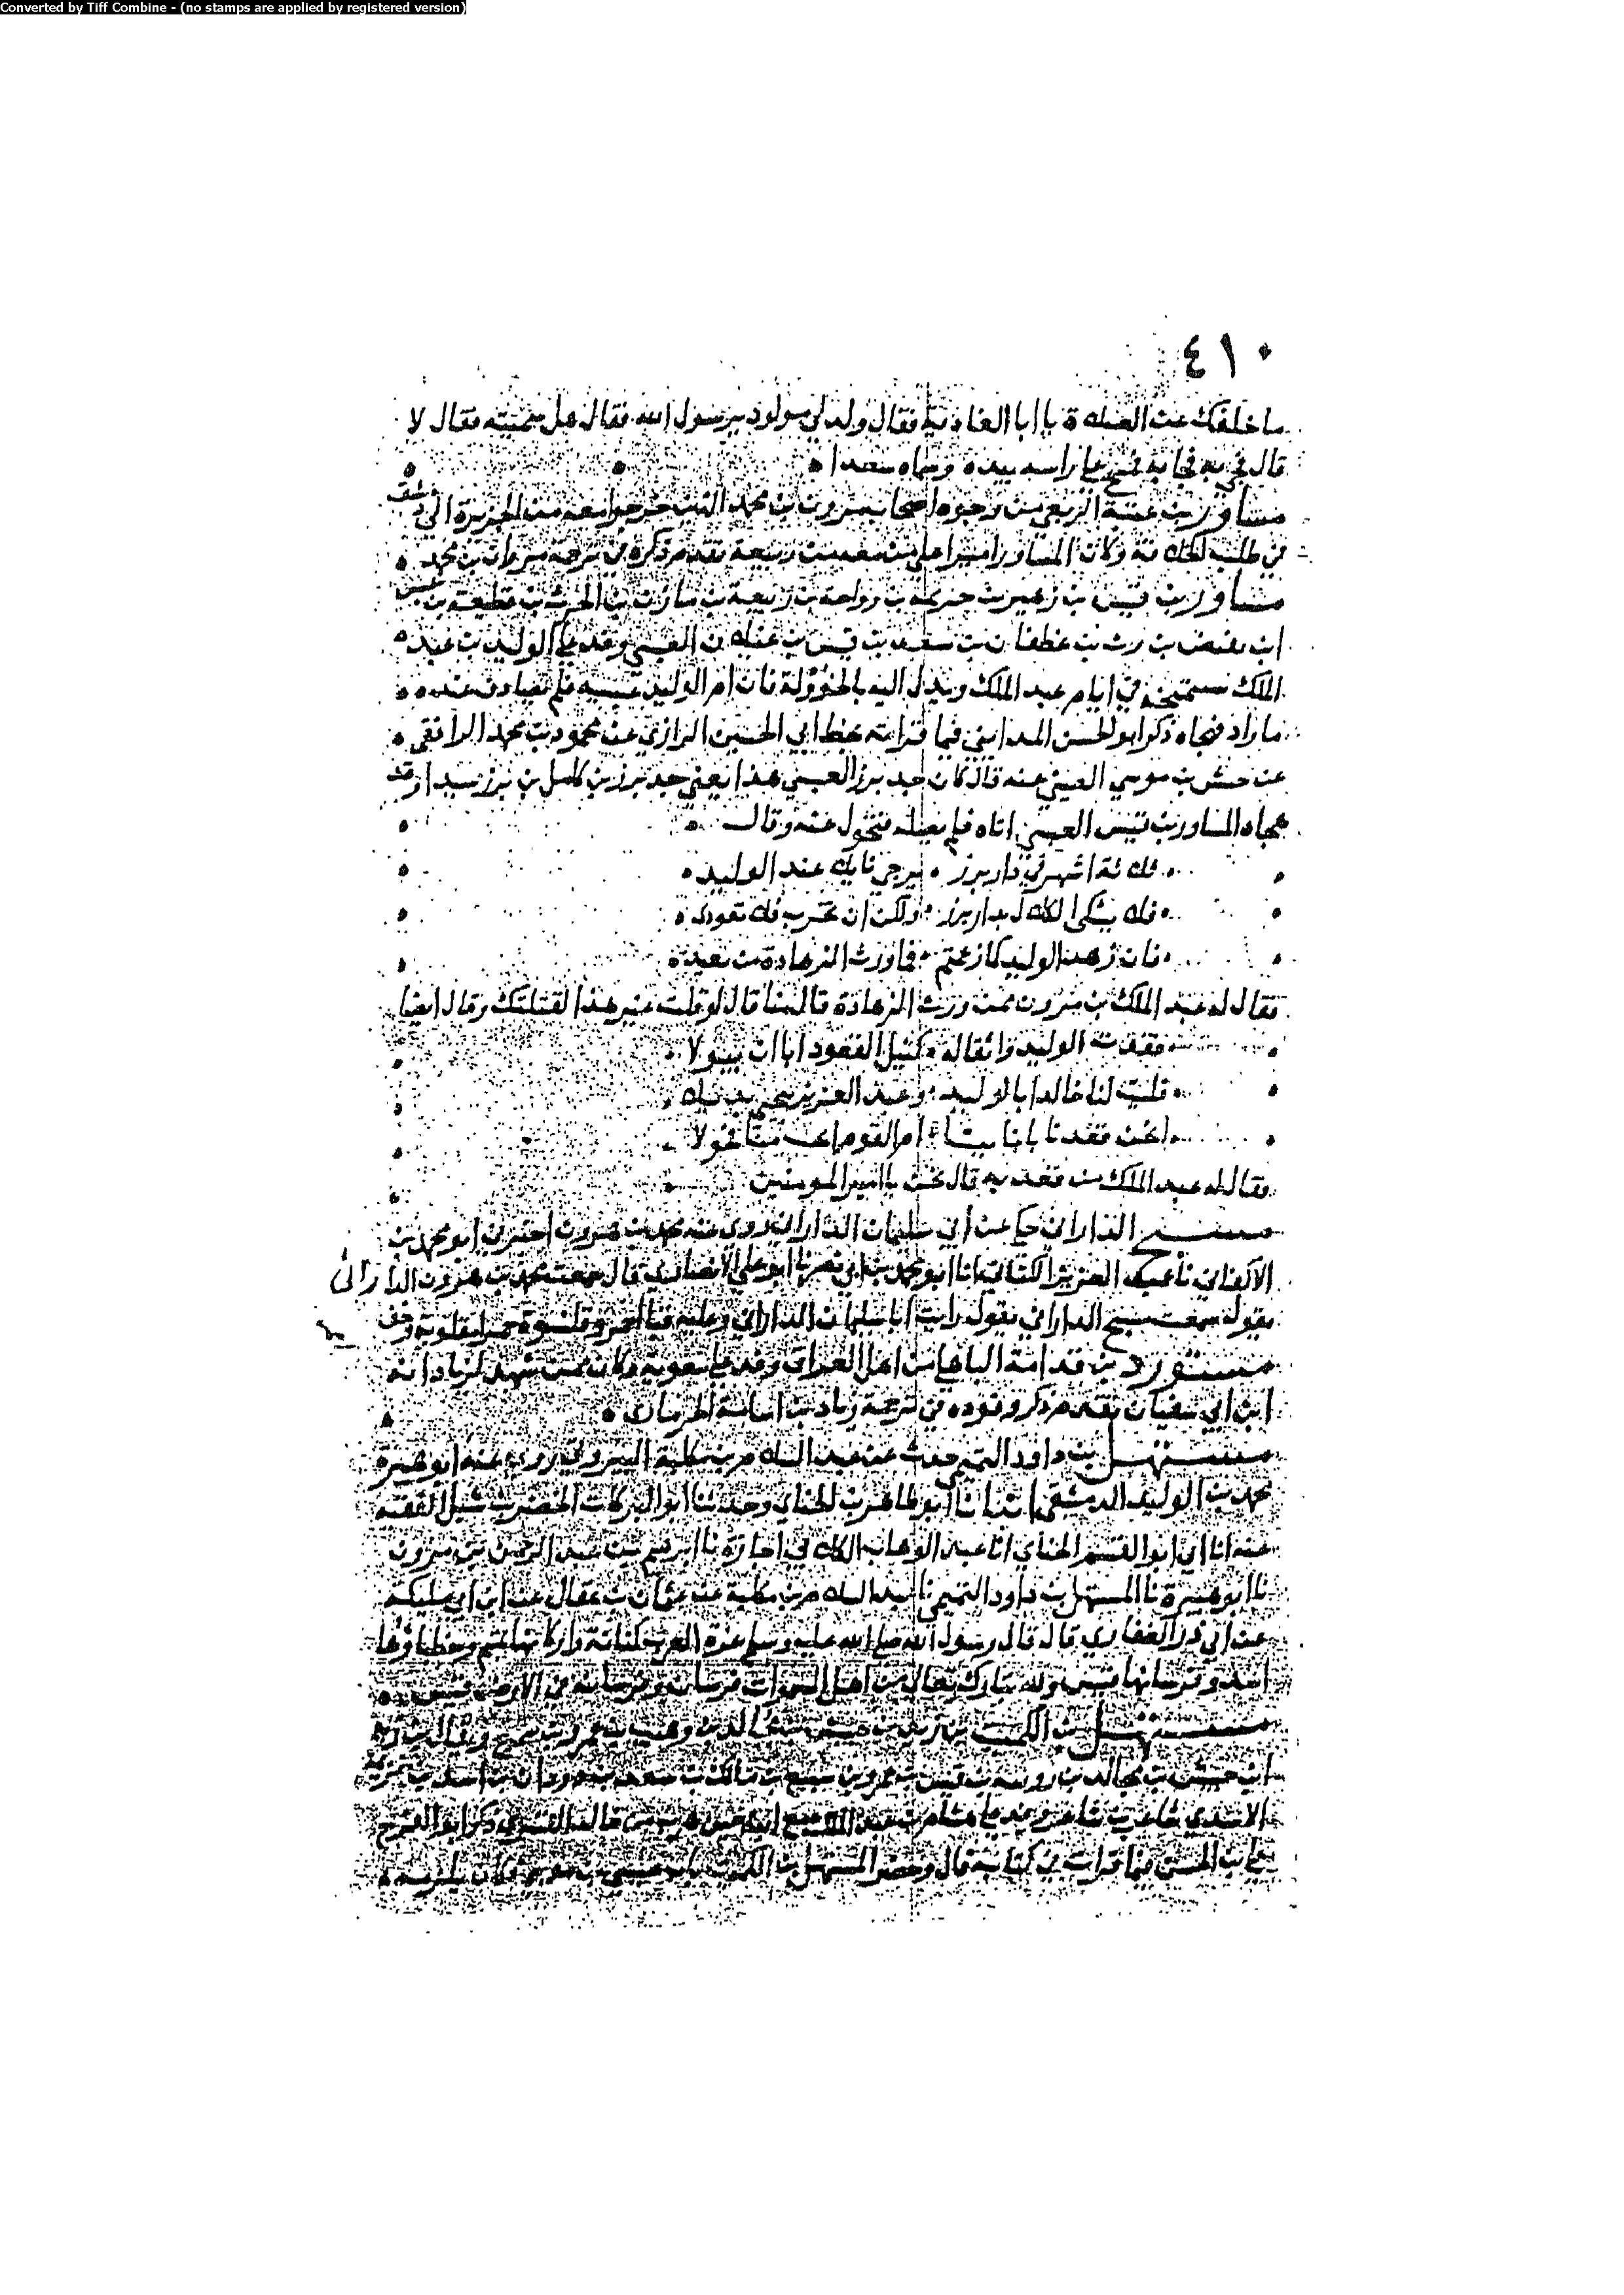 Converted by Tiff Combine - (no stamps are applied by registered version)
٤١٠
ما خلفك عن الصلاة يا ابا الغادية فقال ولد لي مولود يا رسول الله فقال هل سميته فقال لا
قال فجئ به فجا به فمسح على راسه بيده وسماه سعدا
مساور بن عتبة الربعي من وجوه اصحاب مروان بن محمد الذين خرجوا معه من الجزيرة الى دمشق
في طلب الخلافة وكان المساور اميرا على من معه من ربيعة تقدم ذكره في ترجمة مروان بن محمد
مساور بن قيس بن زهير بن جذيمة بن رواحة بن ربيعة بن مازن بن الحرث بن قطيعة بن عبس
ابن بغيض بن ريث بن غطفان بن سعد بن قيس بن عيلان العبسي وفد على الوليد بن عبد
الملك يستمنحه في ايام عبد الملك ويدل اليه بالخؤولة فان ام الوليد عبسية فلم يصادف عنده
ما اراد فهجاه ذكر ابو الحسن المدايني فيما قراته بخط ابي الحسين الرازي عن محمود بن محمد الرافقي
عن حبش بن موسى عنه قال كان جد برز العبسي هذا يعني جد برز بن كامل بن برز سيدا وقد
هجاه المساور بن قيس العبسي اتاه فلم يصله فتحول عنه وقال
ثلاثة اشهر في دار برز يرجي نايلا عند الوليد
فلا يشكى الكلال بدار برز ولكن ان تمر به فلا تعودى
فان زهد الوليد كما زعمتم فما ورث الزهادة من بعيد
فقال له عبد الملك بن مروان ممن ورث الزهادة قال منا قال لو قلت غير هذا لقتلتك وقال ايضا
فقدت الوليد واثقاله كثيل القعود ابا ان يبولا
فليت لنا خالدا بالوليد وعبد العزيز بيحيى بديلا
انحن فقدنا بابنا
فقال له عبد الملك من قعد به قال نحن يا امير المومنين
مسبح الداراني حكى عن ابي سليمان الداراني روى عنه محمد بن هرون اخبرنا ابو محمد بن
الاكفاني نا عبد العزيز الكتاني انا ابو محمد بن ابي نصر نا ابو علي الانصاري قال سمعت محمد بن هرون الداراني
يقول سمعت مسبح الداراني يقول رايت ابا سليمان الداراني وعليه قبا احمر وقلنسوة حمرا مقلوبة وخف
مستورد بن قدامة الباهلي من اهل العراق وفد على معوية وكان ممن شهد لزياد انه
ابن ابي سفيان تقدم ذكر وفوده في ترجمة زياد بن اسامة الحرمازي
مستهل بن داود التميمي حدث عن عبد السلام بن مكلبة البيروتي روى عنه ابو هبيرة
محمد بن الوليد الدمشقي انبانا ابو طاهر بن الحناي وحدثنا ابو البركات الخضر بن شبل الفقيه
عنه انا ابي ابو القسم الحناي انا عبد الوهاب الكلابي اجازة نا ابرهيم بن عبد الرحمن بن مروان
نا ابو هبيرة نا المستهل بن داود التميمي نا عبد السلام بن مكلبة عن عثمان بن عقال عن ابن ابي مليكة
عن ابي ذر الغفاري قال قال رسول الله صلى الله عليه وسلم عزة العرب كنانة واركانها تميم وخطباؤها
اسد وفرسانها قيس ولله تبارك وتعالى من اهل السموات فرسان وفرسانه في الارض قيس
مستهل بن الكميت بن زيد بن حبيش بن مجالد بن وهيب بن عمرو بن سبيع ويقال
ابن حبيش بن مجالد بن رويبة بن قيس بن عمرو بن سبيع بن مالك بن سعد بن دودان بن اسد بن خزيمة
الاسدي شاعر بن شاعر وفد على هشام بن عبد الملك مع ابيه حين هرب من خالد القسري ذكر ابو الفرج
علي بن الحسين فيما قرات في كتابه قال وحضر المستهل بن الكميت باب عيسى بن موسى وكان يكرمه